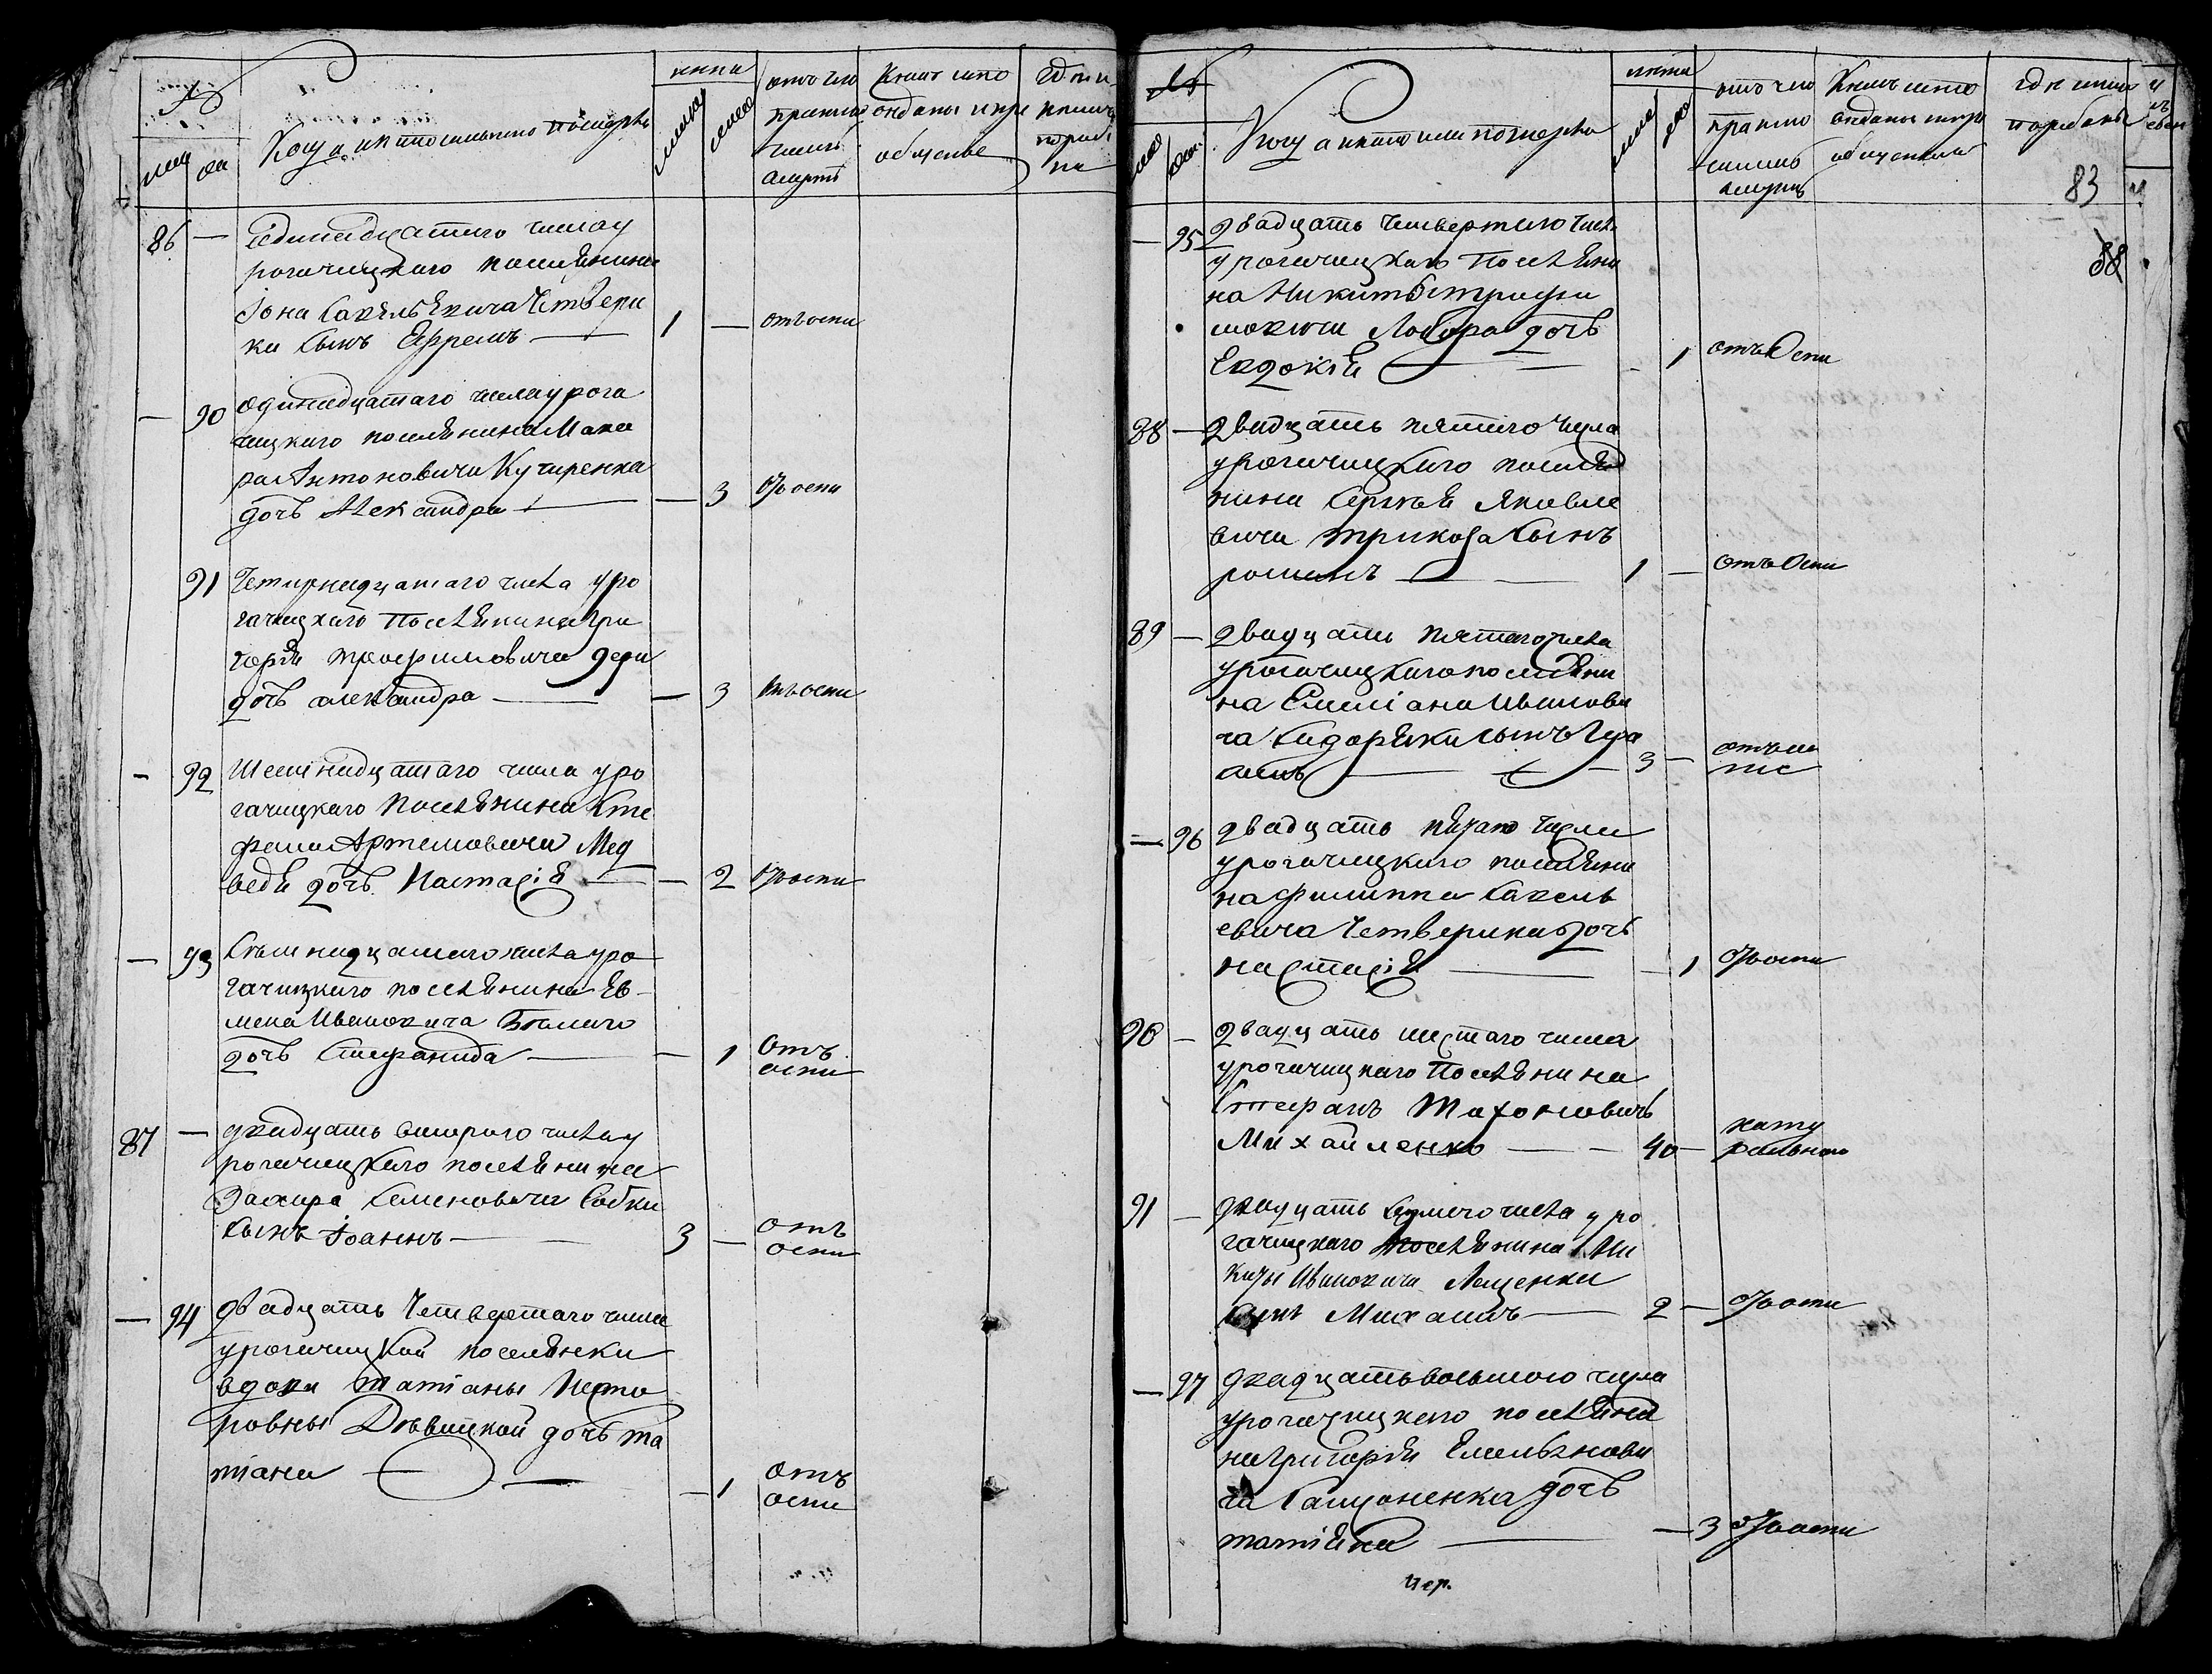 №
Когда и кто имянно померъ
лѣта
отъ чего
приклю
чилась
смерть
Кемъ
где и
86 — единадцатаго числа у
рогачицкаго поселянина
Iона Савельевича Четвери
ки сынъ Ефремъ —
1 — отъ оспи
— 90 одинадцатаго числа у рога
чицкаго поселянина Мака
ра Антоновича Кучиренка
дочь Александра —
— 3 отъ оспи
91 Четирнадцатаго числа у ро
гачицкаго поселянина Гри
горія трофимовича
дочь александра —
— 3 отъ оспи
— 92 Шеснадцатаго числа у ро
гачицкаго поселянина Сте
фана Артемовича Мед
ведя дочь Настасія —
— 2 отъ оспи
— 93 Семнадцатаго числа у ро
гачицкаго поселянина Ев
мена Ивановича Белаго
дочь Стефанида —
— 1 отъ
оспи
87 — двадцать втораго числа у
рогачицкаго поселянина
Захара Семеновича Собки
сынъ Iоаннъ —
3 — отъ
оспи
— 94 двадцать Четвертаго числа
у рогачицкой поселянки
вдови татіаны Несто
ровны Девицкой дочь та
тіана —
— 1 отъ
оспи
№
Когда и кто имянно померъ
лѣта
отъ чего
приклю
чилась
смерть
83
88
— 95 двадцать Четвертаго числа
у рогачицкаго поселяни
на Никиты трофи
мовича дочь
Евдокія —
— 1 отъ Оспи
88 — двадцать пятаго числа
у рогачицкаго поселя
нина Сергѣя Яковле
вича трикоза сынъ
романъ —
1 — отъ Оспи
89 — двадцать пятаго числа
у рогачицкаго поселяни
на Емеліана Иванови
ча Сидоряки сынъ Гера
симъ —
3 — отъ ос
пи
— 96 двадцать пятаго числа
у рогачицкаго поселяни
на филиппа Савель
евича Четверики дочь
настасія —
— 1 отъ оспи
90 — двадцать шестаго числа
у рогачицкаго поселянина
Стефанъ Тихоновичъ
Михайленко —
40 — нату
ральною
91 — двадцать седмаго числа у ро
гачицкаго поселянина Ни
киты Ивановича Лященка
сынъ Михаилъ —
2 — отъ оспи
— 97 двадцать восьмого числа
у рогачицкаго поселяни
на григорія Емельянови
ча дочь
татіяна —
— 3 отъ оспи